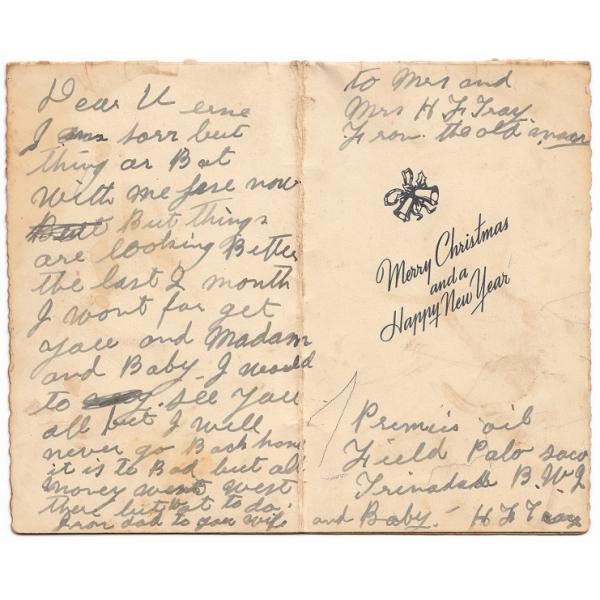 Dear U erne
I am sorr but
thing ar Bat
With me jase now
But But things
are looking Better
the last 2 month
I wont for get
yoce and Madam
and Baby. I would
to see you
all but I will
never go Back home
it is to Bad but all
money went west
there but wat to do.
From dad to your wife
and Baby.
to Mrs and
Mrs H F Tray
From. the old man
Merry Christmas
and a
Happy New Year
Premiis oil
Field Palo saco
Trinadad B.W.I
H F Tray